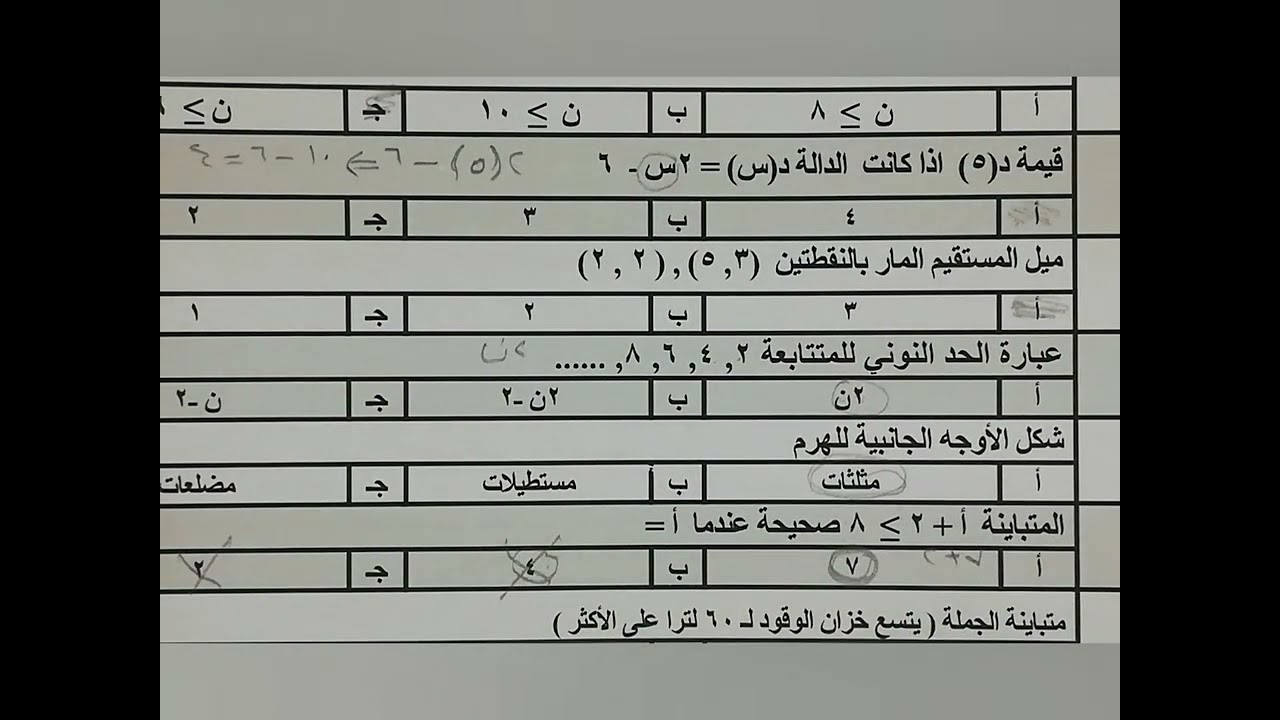 أ ن ≥ ٨ ب ن ≥ ١٠ جـ ن ≥
قيمة د(٥) اذا كانت الدالة د(س) = ٢س - ٦ ٢(٥) - ٦ => ١٠ - ٦ = ٤
أ ٤ ب ٣ جـ ٢
ميل المستقيم المار بالنقطتين (٣, ٥) , (٢ , ٢)
أ ٣ ب ٢ جـ ١
عبارة الحد النوني للمتتابعة ٢, ٤, ٦, ٨, ...... ٢ن
أ ٢ن ب ٢ن -٢ جـ ن -٢
شكل الأوجه الجانبية للهرم
أ مثلثات ب مستطيلات جـ مضلعات
المتباينة أ + ٢ ≥ ٨ صحيحة عندما أ =
أ ٧ ب ٤ جـ ٢
متباينة الجملة ( يتسع خزان الوقود لـ ٦٠ لترا على الأكثر )